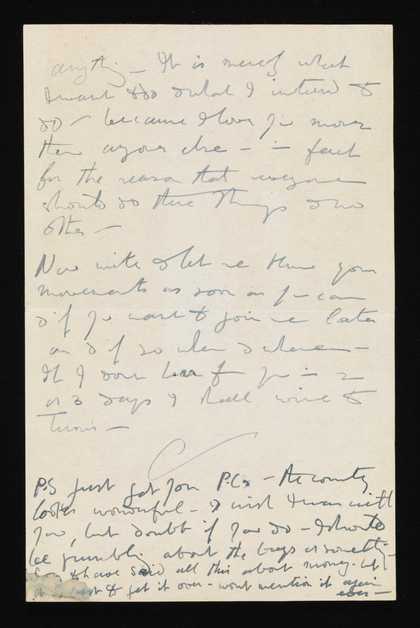 anything — It is merely what
I want to do & what I intend to
do — because I love you more
than anyone else — in fact
for the reason that everyone
should do these things & no
other —
Now write & let me have your
movements as soon as you can
& if you want to join me later
on & if so when & where —
If I don't hear from you in 2
or 3 days I shall wire to
Tunis —
C
P.S just got your P.Cs — the country
looks wonderful — I wish I was with
you, but doubt if you do — I should
be grumbling about the bugs or something —
Sorry to have said all this about money — but
to get it over — wont mention it again
ever —